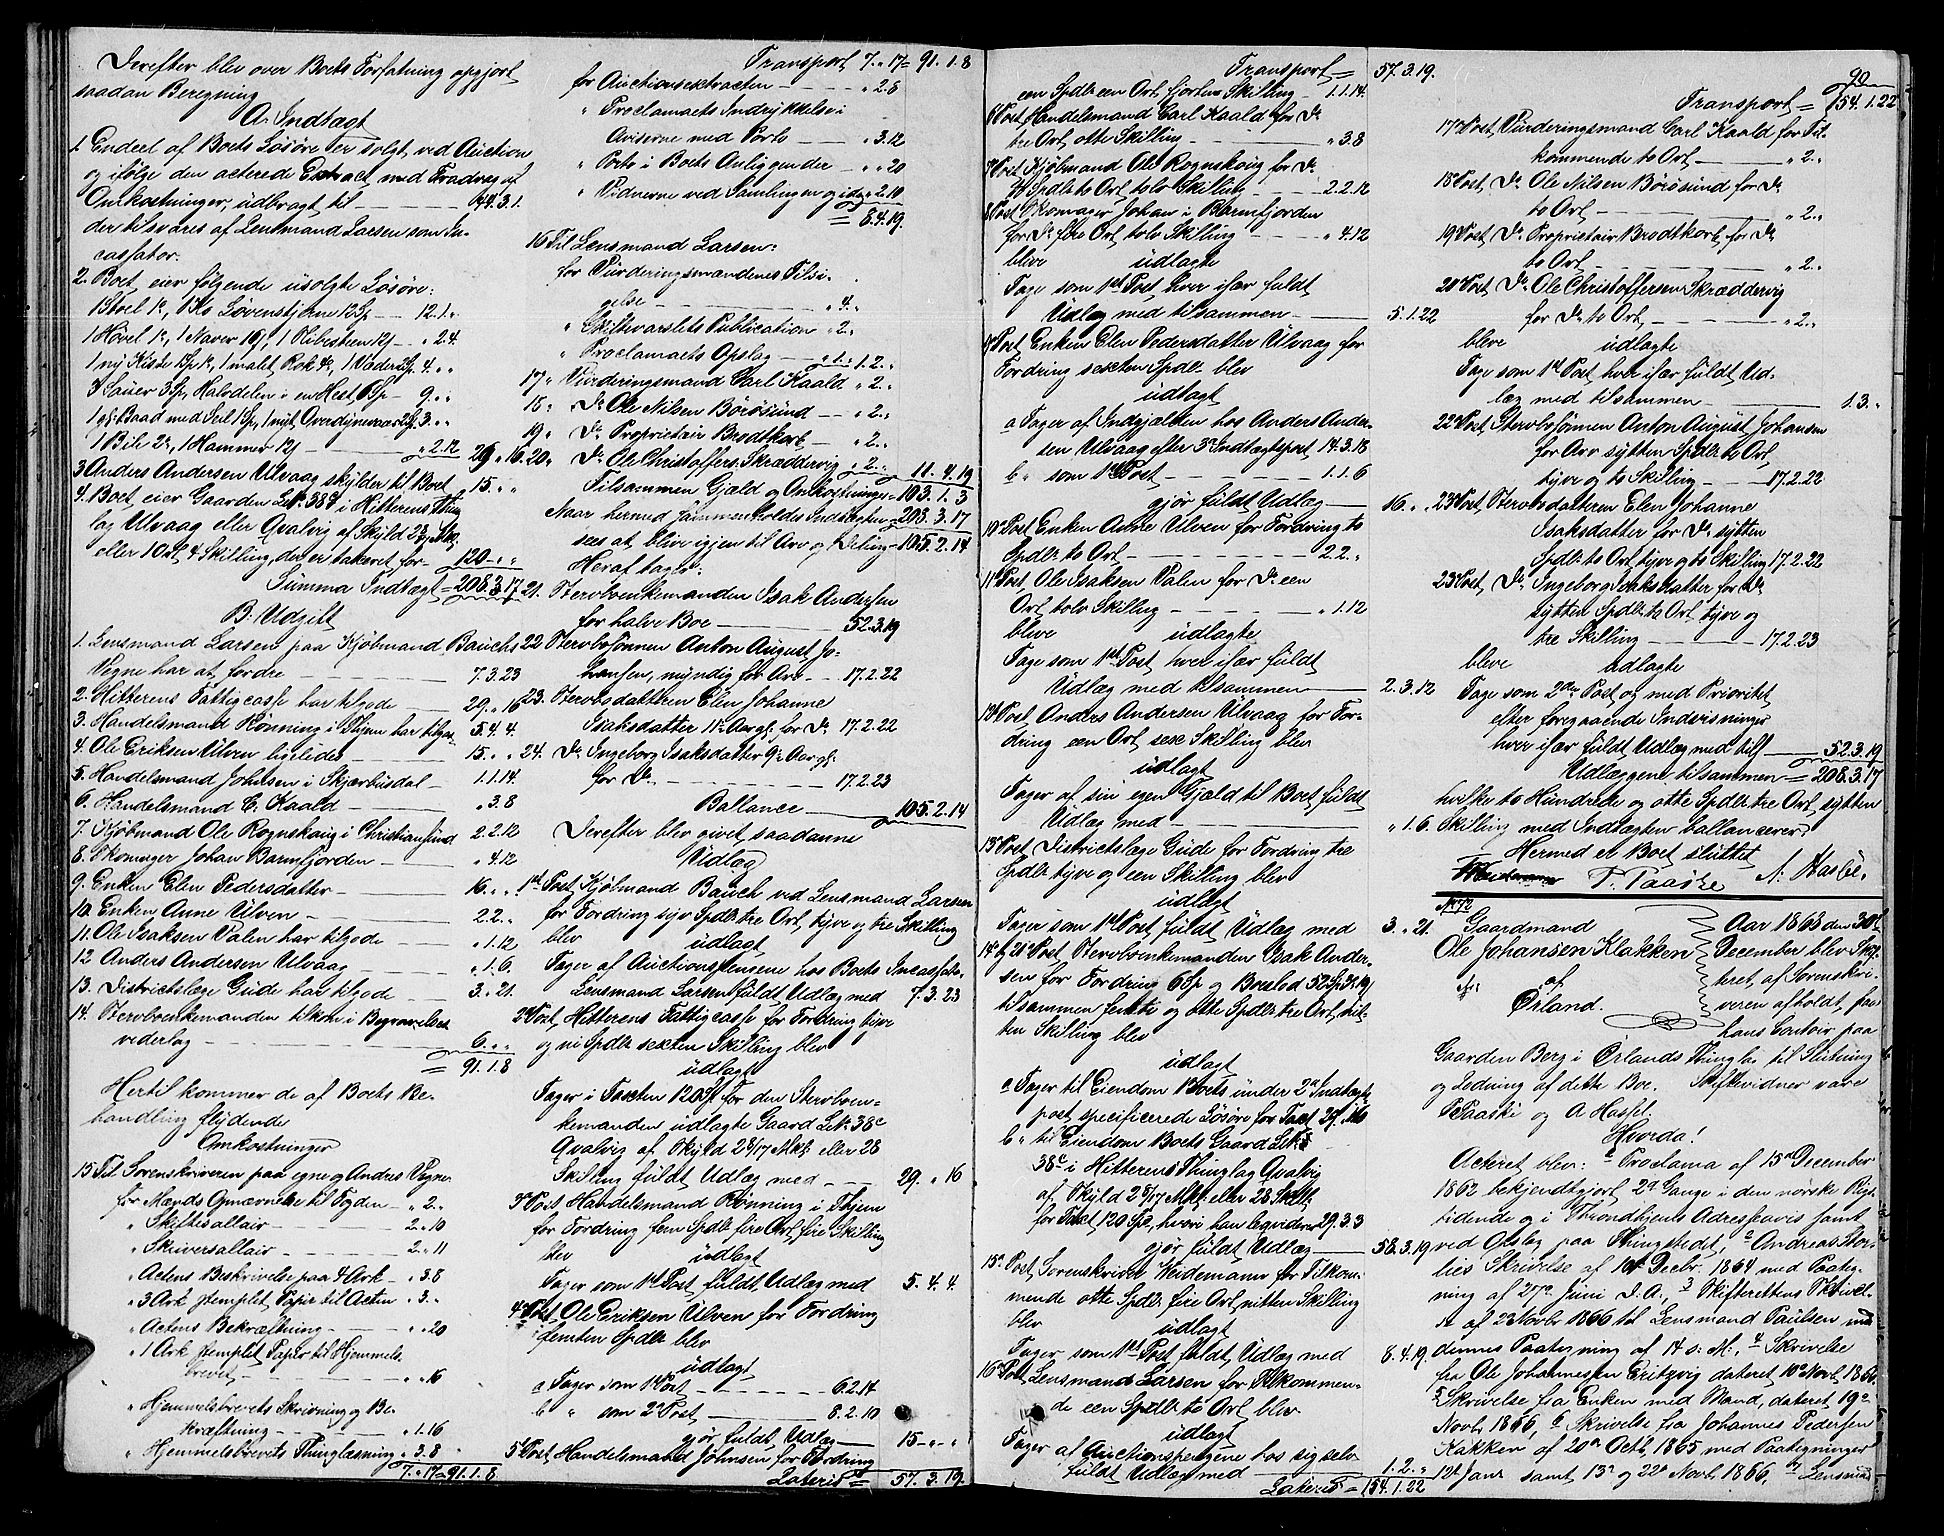 Derefter blev over Boets Forfatning opgjort
saadan Beregning
A. Indtægt
1. Endeel af Boets Løsøre er solgt ved Auction
og ifølge den acterede Extract med Fradrag af
Omkostninger, udbragt til 44.3.1.
der tilsvares af Lensmand Larsen som In-
cassator.
2. Boet eier følgende usolgte Løsøre:
12.1.„
1 Høvel 1/, 1 Naver 19/, 1 Ribesteen 12/ „2.4.
4.„„
3 Sauer 3 Sp, Halvdelen i en Hest 6 Sp 9.„„
3.„„
1 Bile 2/, 1 Hammer 12/ „2.12 29.„16.
3 Anders Andersen Ulvaag skylder til Boet 15.„„
4. Boet eier Gaarden LNr. 38c i Hitterens Thing-
lag Ulvaag eller Qvalvig af Skyld
eller 1 Ort 4 Skilling, der er taxeret for 120.„„
Summa Indtægt = 208.3.17
B. Udgift
1. Lensmand Larsen paa Kjøbmand Bauchs
Vegne har at fordre 7.3.23
2. Hitterens Fattigcasse har tilgode 29.„16
3. Handelsmand Rønning i Thjem har tilgo- 5.4.4.
4. Ole Eriksen Ulven ligeledes 15.„„
5. Handelsmand Johnsen i Skjærbusdal 1.1.14.
6. Handelsmand C. Kaald „3.8
7. Kjøbmand Ole Rognskoug i Christiansund 2.2.12
8. Skomager Johan Barmfjorden „4.12
9. Enken Elen Pedersdatter 16.„„
10. Enken Anne Ulven 2.2.„
11. Ole Isaksen Valen har tilgode „1.12
12 Anders Andersen Ulvaag „1.6.
13. Districtslæge Gude har tilgode 3.„21.
14. Stervboenkemanden tilkom i Begravelses
vederlag 6.„„
= 91.1.8
Hertil kommer de af Boets Be-
handling flydende
Omkostninger
15 Til Sorenskriveren paa egne og Andres Vegne
for Mænds Opnævnelse til Fogden „2.„
„ Skiftesallair 2.„10
„ Skriversallair 2.„11
„ Actens Beskrivelse paa 4 Ark „3.8
„ 3 Ark stemplet Papir til Acten „3.„
„ Actens Bekræftning „„20
„ 1 Ark stemplet Papir til Hjemmels-
brevet „„16
„ Hjemmelsbrevets Skrivning og Be-
kræftning „1.16
„ Hjemmelsbrevets Thinglæsning „3.8
7.„17=91.1.8
Transport 7.„17= 91.1.8
for Auctionsextracten „2.8
„ Proclamaets Indrykkelse i
Aviserne med Porto „3.12
„ Porto i Boets Anliggender „„20
„ Vidnerne ved Samlingen „2.10
= 8.4.19.
16 Til Lensmand Larsen:
for Vurderingsmændenes Tilsi-
gelse „4.„
„ Skiftevarslets Publication „2.„
„ Proclamaets Opslag „1.„ 1.2.„
17 „ Vurderingsmand Carl Kaald „2.„
18 „ Do Ole Nilsen Börösund „2.„
19 „ Do Proprietair Brodtkorb „2.„
20 „ Do Ole Christoffers. Skræddervig „2.„ 11.4.19
Tilsammen Gjæld og Omkostninger = 103.1.3
Naar hermed sammenholdes Indtægten = 208.3.17
sees at blive igjen til Arv og Deling = 105.2.14
Heraf tager:
21. Stervboenkemanden Isak Andersen
for halve Boe 52.3.19
22 Stervbosønnen Anton August Jo-
hansen, myndig for Arv 17.2.22
23. Stervbodatteren Elen Johanne
Isaksdatter 11 Aar gl. for Do 17.2.22
24. Do Ingeborg Isaksdatter 9 Aar gl.
for Do 17.2.23
Ballance 105.2.14
Derefter blev givet saadanne
Udlæg
1st Post, Kjøbmand Bauch ved Lensmand Larsen
for Fordring syv Spdlr. tre Ort, tyve og tre Skilling
blev udlagt
Tager af Auctionspengene hos Boets Incassator
Lensmand Larsen fuldt Udlæg med 7.3.23
2de Post, Hitterens Fattigcasse for Fordring tyve
og ni Spdlr. sexten Skilling blev
udlagt
Tager i Taxten 120 Sp for den Stervboen-
kemanden udlagte Gaard LNr. 38c
Qvalvig af Skyld 2 8/17 Mkt. eller 28
Skilling fuldt Udlæg med 29.„16
3de Post Handelsmand Rønning i Thjem
for Fordring fem Spdlr. fire Ort, fire Skilling
blev udlagt
Tager som 1st Post fuldt Udlæg med 5.4.4
4de Post, Ole Eriksen Ulven for Fordring
femten Spdlr. blev
udlagt
a Tager som 1st Post 6.2.14
b „ som 2de Post 8.2.10
gjør fuldt Udlæg 15.„„
5te Post, Handelsmand Johnsen for Fordring
Lateris = 57.3.19.
Transport = 57.3.19.
een Spdlr. een Ort fjorten Skilling 1.1.14.
6te Post, Handelsmand Carl Kaald for Do
tre Ort, otte Skilling „3.8
7de Post, Kjøbmand Ole Rognskoug for Do
to Spdlr. to Ort, tolv Skilling 2.2.12
8de Post Skomager Johan i Barmfjorden
for Do fire Ort, tolv Skilling „4.12
bleve udlagte
Tage som 1st Post, hver især fuldt
Udlæg med tilsammen 5.1.22
9de Post, Enken Elen Pedersdatter Ulvaag for
Fordring sexten Spdlr. blev
udlagt
a Tager af Indgjælden hos Anders Ander-
sen Ulvaag efter 3de Indtægtspost 14.3.18
b „ som 1st Post 1.1.6
gjør fuldt Udlæg 16.„„
10de Post, Enken Anne Ulven for Fordring to
Spdlr. to Ort 2.2.„
11te Post, Ole Isaksen Valen for Do een
Ort, tolv Skilling „1.12
bleve udlagte
Tage som 1st Post, hver især fuldt
Udlæg med tilsammen 2.3.12
12te Post, Anders Andersen Ulvaag for For-
dring een Ort, sex Skilling blev
udlagt
Tager af sin egen Gjæld til Boet, fuldt
Udlæg med „1.6.
13de Post, Districtslæge Gude for Fordring tre
Spdlr. tyve og een Skilling blev
udlagt
Tager som 1st Post, fuldt Udlæg med 3.„21.
14de & 21de Post, Stervboenkemanden Isak Ander-
sen for Fordring 6 Sp og Boeslod 52 Sp 3 / 19 /
tilsammen femti og otte Spdlr. tre Ort, nit-
ten Skilling blev
udlagt
a Tager til Eiendom Boets under 2de Indtægts-
post specificerede Løsøre for Taxt 29.„16
b „ til Eiendom Boets Gaard LNr.
38c i Hitterens Thinglag Qvalvig
af Skyld 2 8/17 Mkt. eller 28 Skill.
for Taxt 120 Sp, hvori han leqviderer 29.3.3
gjør fuldt Udlæg 58.3.19
15de Post, Sorenskriver Weidemann for Tilkom-
mende otte Spdlr. fire Ort, nitten Skilling
blev udlagt
Tager som 1st Post fuldt Udlæg med 8.4.19.
16de Post, Lensmand Larsen for Tilkommen-
de een Spdlr. to Ort blev
udlagt
Tager af Auctionspengene hos sig selv
fuldt Udlæg med 1.2.„
Lateris = 154.1.22
90
Transport = 154.1.22
17de Post, Vurderingsmand Carl Kaald for Til-
kommende to Ort „2.„
18de Post, Do Ole Nilsen Börösund for Do
to Ort „2.„
19de Post, Do Proprietair Brodtkorb for Do
to Ort „2.„
20de Post, Do Ole Christoffersen Skræddervig
for Do to Ort „2.„
bleve udlagte
Tage som 1st Post, hver især fuldt Ud-
læg med tilsammen 1.3.„
22de Post, Stervbosønnen Anton August Johansen
for Arv sytten Spdlr. to Ort,
tyve og to Skilling 17.2.22
23de Post, Stervbodatteren Elen Johanne
Isaksdatter for Do sytten
Spdlr. to Ort, tyve og to Skilling 17.2.22
23de Post, Do Ingeborg Isaksdatter for Do
sytten Spdlr. to Ort, tyve og
tre Skilling 17.2.23
bleve udlagte
Tage som 2den Post, og med Prioritet
efter foregaaende Indvisninger
hver især fuldt Udlæg med tils. 52.3.19
Udlæggene tilsammen = 208.3.17
hvilke to Hundrede og otte Spdlr. tre Ort, sytten
Skilling med Indtægten ballancerer.
Hermed er Boet sluttet
Weidemann T. Paaske A. Hasfle.
No 72
Gaardmand
Ole Johansen Klakken
af
Ørland.
Aar 1868 den 30te
December blev Skif-
teret, af Sorenskri-
veren afholdt, paa
hans Contoir paa
Gaarden Berg i Ørlands Thinglag til Slutning
og Lodning af dette Boe. Skiftevidner vare
T. Paaske og A Hasfle.
Hvorda!
Acteret blev: 1 Proclama af 15de December
1862 bekjendtgjort 2de Gange i den norske Rigs-
tidende og i Throndhjems Adresseavis samt
ved Opslag paa Thingstedet, 2 Andreas
Skrivelse af 10de Decbr. 1864 med Paateg-
ning af 27de Juni D.A., 3 Skifterettens Skrivel-
se af 22 Novbr 1866 til Lensmand Paulsen med
dennes Paategning af 14 s. M., 4 Skrivelse
fra Ole Johannessen Eritzvig dateret 10de Novbr 1866
5 Skrivelse fra Enken med Mand, dateret 19de
Novbr. 1866, 6 Skrivelse fra Johannes Pedersen
Klakken af 20de Octb. 1865 med Paategninger
12te Janr samt 13de og 22de Novbr. 1866, 7 Lensmand